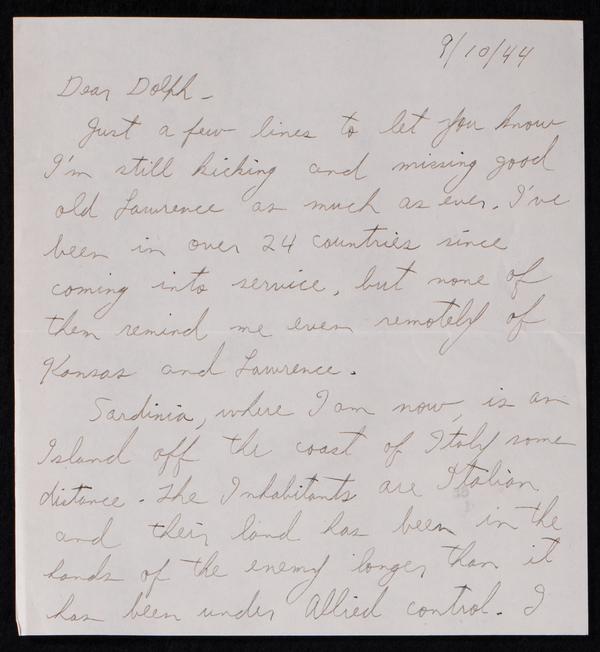 9/10/44
Dear Dolph -
Just a few lines to let you know
I'm still kicking and missing good
old Lawrence as much as ever. I've
been in over 24 countries since
coming into service, but none of
them remind me even remotely of
Kansas and Lawrence.
Sardinia, where I am now, is an
Island off the coast of Italy some
distance. The Inhabitants are Italian
and their land has been in the
hands of the enemy longer than it
has been under Allied control. I